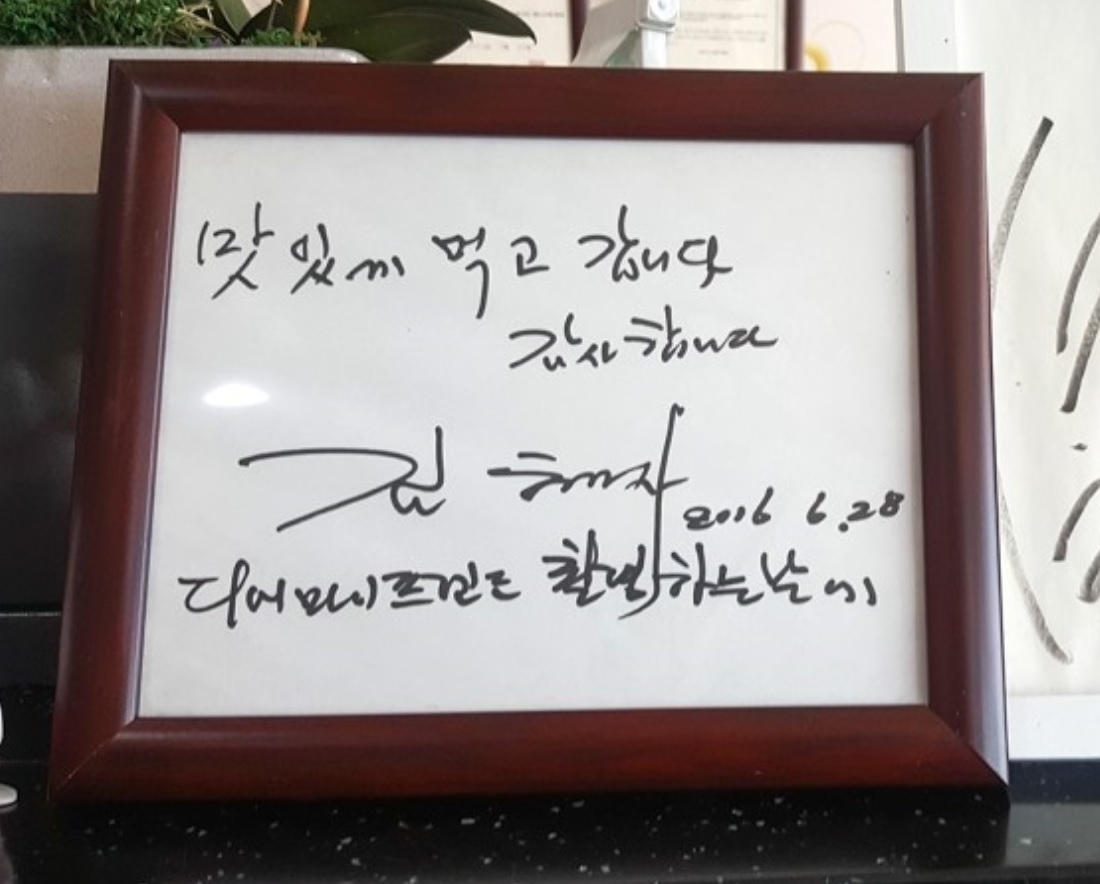 맛있게 먹고 갑니다
감사합니다
김혜자
2016 6.28
디어 마이 프렌드 촬영하는 날에